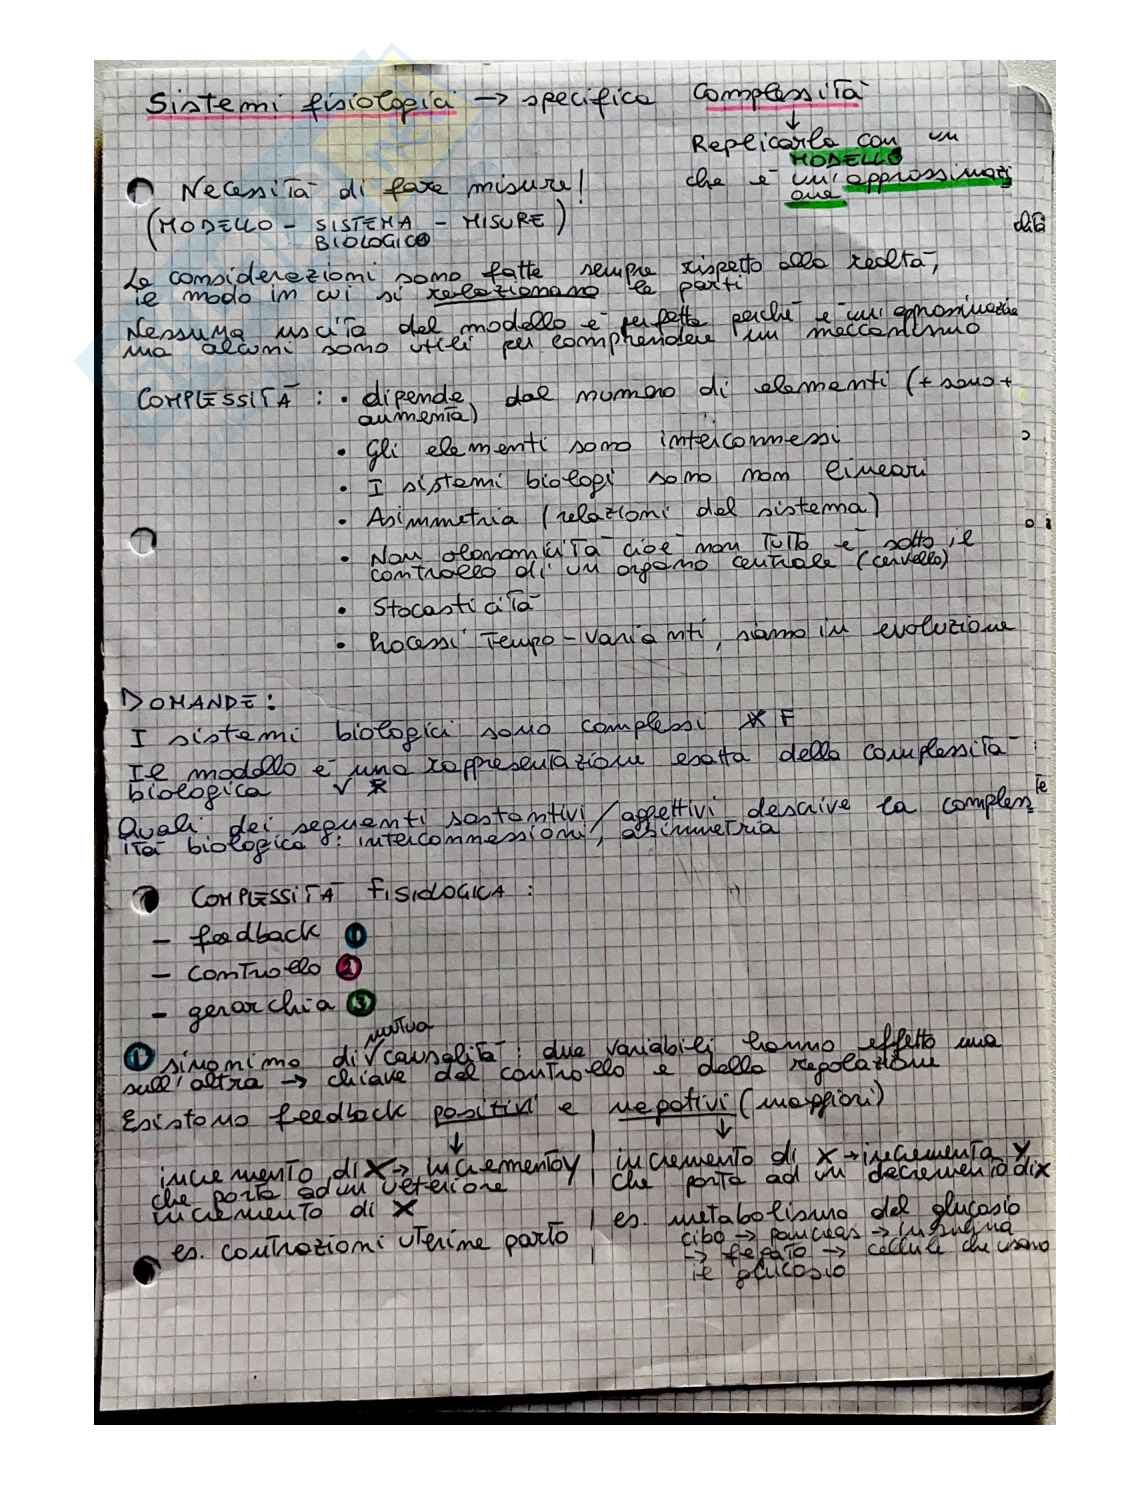 Sistemi fisiologici → specifica complessità
↓
Replicarla con un
MODELLO
che è un'approssimazi
one
Necessità di fare misure!
(MODELLO - SISTEMA - MISURE)
BIOLOGICO
Le considerazioni sono fatte sempre rispetto alla realtà,
il modo in cui si relazionano le parti
Nessuna uscita del modello è perfetta perché è un'approssimazione
ma alcuni sono utili per comprendere un meccanismo
COMPLESSITÀ : • dipende dal numero di elementi (+ sono +
aumenta)
• Gli elementi sono interconnessi
• I sistemi biologi sono non lineari
• Asimmetria (relazioni del sistema)
• Non olonomicità cioè non tutto è sotto il
controllo di un organo centrale (cervello)
• Stocasticità
• Processi tempo-varianti, siamo in evoluzione
DOMANDE:
I sistemi biologici sono complessi F
Il modello è una rappresentazione esatta della complessità
biologica V
Quali dei seguenti sostantivi/aggettivi descrive la comples
ità biologica: interconnessioni, asimmetria
COMPLESSITÀ FISIOLOGICA:
- feedback 1
- controllo 2
- gerarchia 3
mutua
1 sinonimo di causalità: due variabili hanno effetto una
sull'altra → chiave del controllo e della regolazione
Esistono feedback positivi e negativi (maggiori)
↓ ↓
incremento di X → incremento Y
che porta ad un ulteriore
incremento di X
es. contrazioni uterine parto
incremento di X → incrementa Y
che porta ad un decremento di X
es. metabolismo del glucosio
cibo → pancreas → insulina
→ fegato → cellule che usano
il glucosio